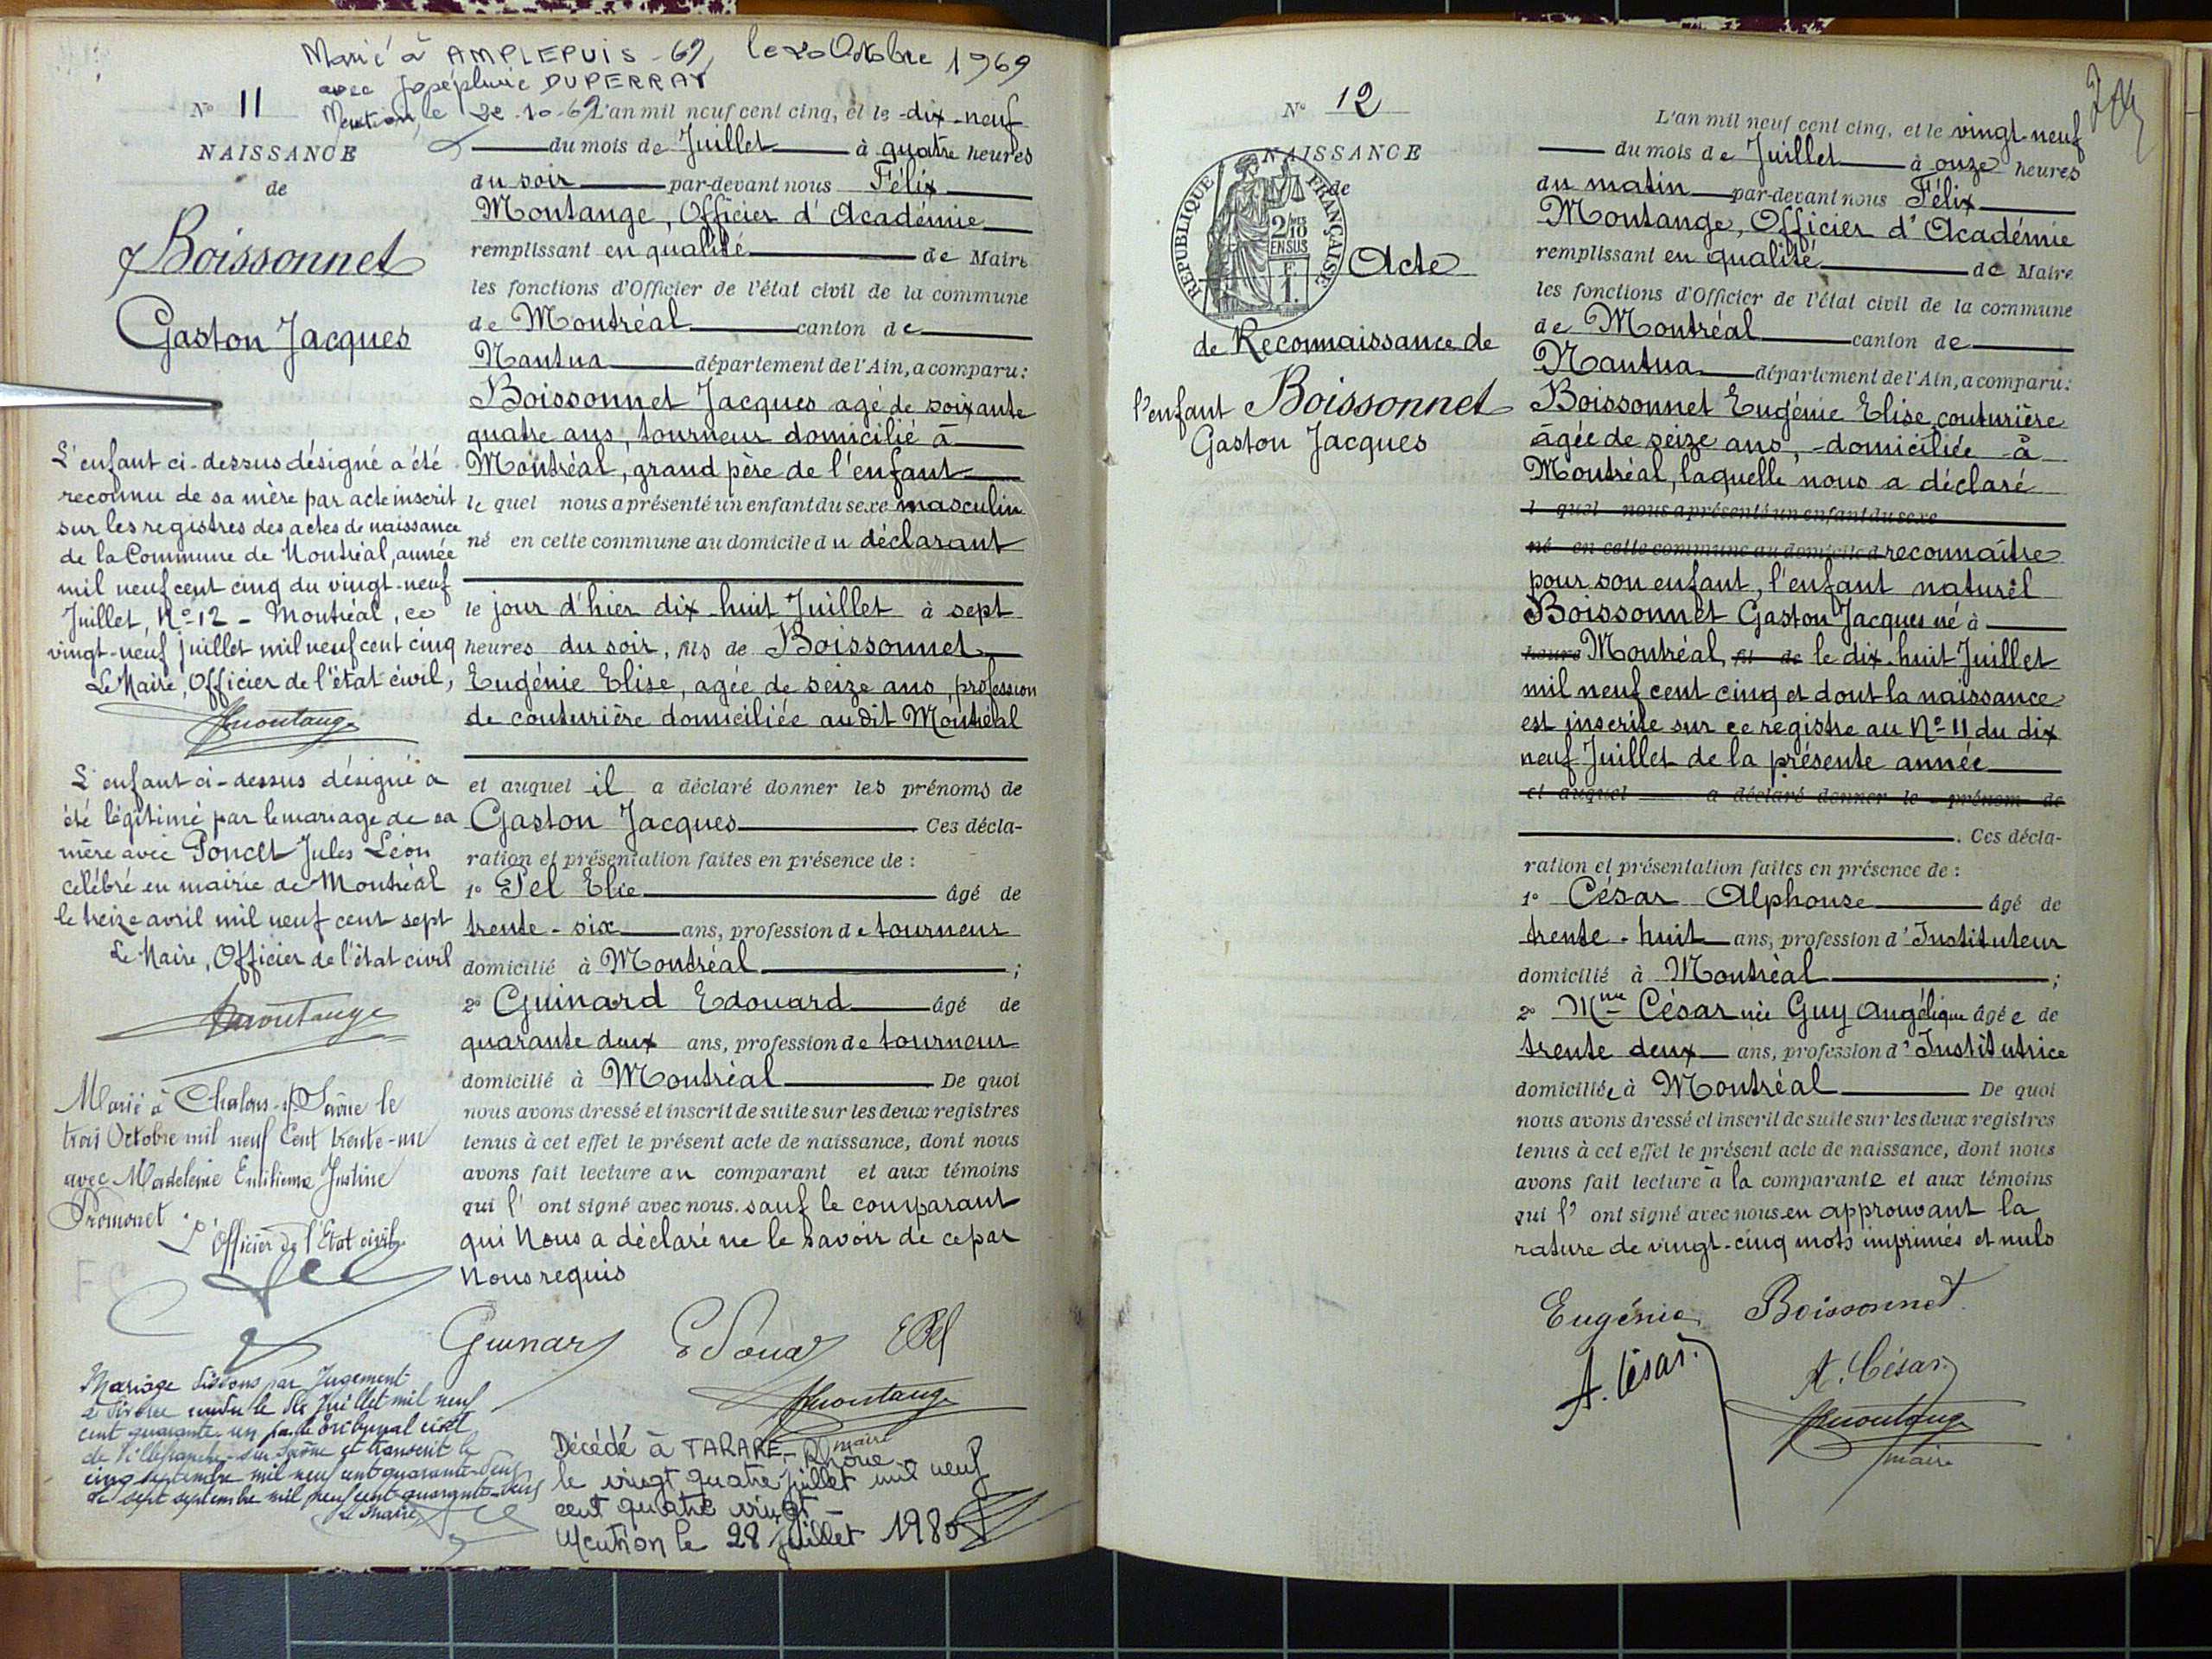 Marié à AMPLEPUIS - 69, le 20 Octobre 1969
avec Joséphine DUPERRAY
Mention le 22.10.69
N° 11
NAISSANCE
de
Boissonnet
Gaston Jacques
L'enfant ci-dessus désigné a été
reconnu de sa mère par acte inscrit
sur les registres des actes de naissance
de la Commune de Montréal, année
mil neuf cent cinq du vingt-neuf
Juillet, N° 12 - Montréal, ce
vingt-neuf juillet mil neuf cent cinq
Le Maire, Officier de l'état civil,
Fmontange
L'enfant ci-dessus désigné a
été légitimé par le mariage de sa
mère avec Poncet Jules Léon
célébré en mairie de Montréal
le treize avril mil neuf cent sept
Le Maire, Officier de l'état civil
Fmontange
Marié à Chalons-s/-Saône le
trois Octobre mil neuf Cent trente-un
avec Madeleine Emilienne Justine
Promonet
L'Officier de l'Etat civil
Mariage dissous par Jugement
de divorce rendu le Juillet mil neuf
cent quarante-un par le tribunal civil
de Villefranche-sur-Saône et transcrit le
cinq septembre mil neuf cent quarante-deux
Le sept septembre mil neuf cent quarante-deux
Le Maire
L'an mil neuf cent cinq, et le dix-neuf
du mois de Juillet à quatre heures
du soir par-devant nous Félix
Montange, Officier d'Académie
remplissant en qualité de Maire
les fonctions d'Officier de l'état civil de la commune
de Montréal canton de
Nantua département de l'Ain, a comparu :
Boissonnet Jacques agé de soixante
quatre ans, tourneur domicilié à
Montréal, grand père de l'enfant
le quel nous a présenté un enfant du sexe masculin
né en cette commune au domicile du déclarant
le jour d'hier dix-huit Juillet à sept
heures du soir, fils de Boissonnet
Eugénie Elise, agée de seize ans, profession
de couturière domiciliée au dit Montréal
et auquel il a déclaré donner les prénoms de
Gaston Jacques Ces décla-
ration et présentation faites en présence de :
1° Pel Elie âgé de
trente-six ans, profession de tourneur
domicilié à Montréal ;
2° Guinard Edouard âgé de
quarante deux ans, profession de tourneur
domicilié à Montréal De quoi
nous avons dressé et inscrit de suite sur les deux registres
tenus à cet effet le présent acte de naissance, dont nous
avons fait lecture au comparant et aux témoins
qui l' ont signé avec nous. sauf le comparant
qui Nous a déclaré ne le savoir de ce par
Nous requis
Guinard Edouard EPel
Fmontange
maire
Décédé à TARARE - Rhône -
le vingt quatre juillet mil neuf
cent quatre vingt -
Mention le 28 juillet 1980
N° 12
NAISSANCE
de
REPUBLIQUE FRANÇAISE
2/10
EN SUS
F
1.
Acte
de Reconnaissance de
l'enfant Boissonnet
Gaston Jacques
L'an mil neuf cent cinq, et le vingt-neuf
du mois de Juillet à onze heures
du matin par-devant nous Félix
Montange, Officier d'Académie
remplissant en qualité de Maire
les fonctions d'Officier de l'état civil de la commune
de Montréal canton de
Nantua département de l'Ain, a comparu :
Boissonnet Eugénie Elise, couturière
âgée de seize ans, -domiciliée à
Montréal, laquelle nous a déclaré
l quel nous a présenté un enfant du sexe
né en cette commune au domicile d reconnaître
pour son enfant, l'enfant naturel
Boissonnet Gaston Jacques né à
heure Montréal, fil de le dix-huit Juillet
mil neuf cent cinq et dont la naissance
est inscrite sur ce registre au N° 11 du dix
neuf Juillet de la présente année
et auquel a déclaré donner le prénom de
. Ces décla-
ration et présentation faites en présence de :
1° César Alphonse âgé de
trente-huit ans, profession d'Instituteur
domicilié à Montréal ;
2° Mme César née Guy Angélique âgée de
trente deux ans, profession d'Institutrice
domiciliée à Montréal De quoi
nous avons dressé et inscrit de suite sur les deux registres
tenus à cet effet le présent acte de naissance, dont nous
avons fait lecture à la comparante et aux témoins
qui l' ont signé avec nous en approuvant la
rature de vingt-cinq mots imprimés et nuls
Eugénie Boissonnet
A. César A. César
Fmontange
maire